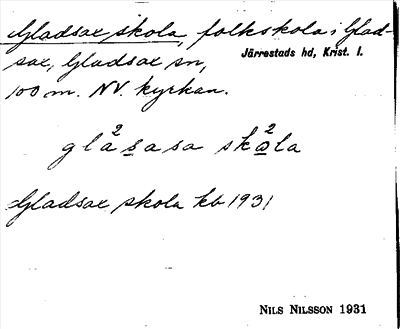 Gladsax skola, folkskola i Glad-
sax, Gladsax sn, Järrestads hd, Krist. l.
100 m. NV. kyrkan.
gla²sasa sko²la
Gladsax skola kb 1931
NILS NILSSON 1931